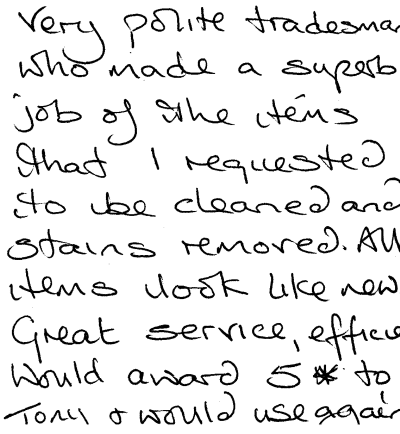 Very polite tradesman
who made a superb
job of the items
that I requested
to be cleaned and
stains removed. All
items look like new
Great service, efficie
Would award 5 * to
Tony & would use again